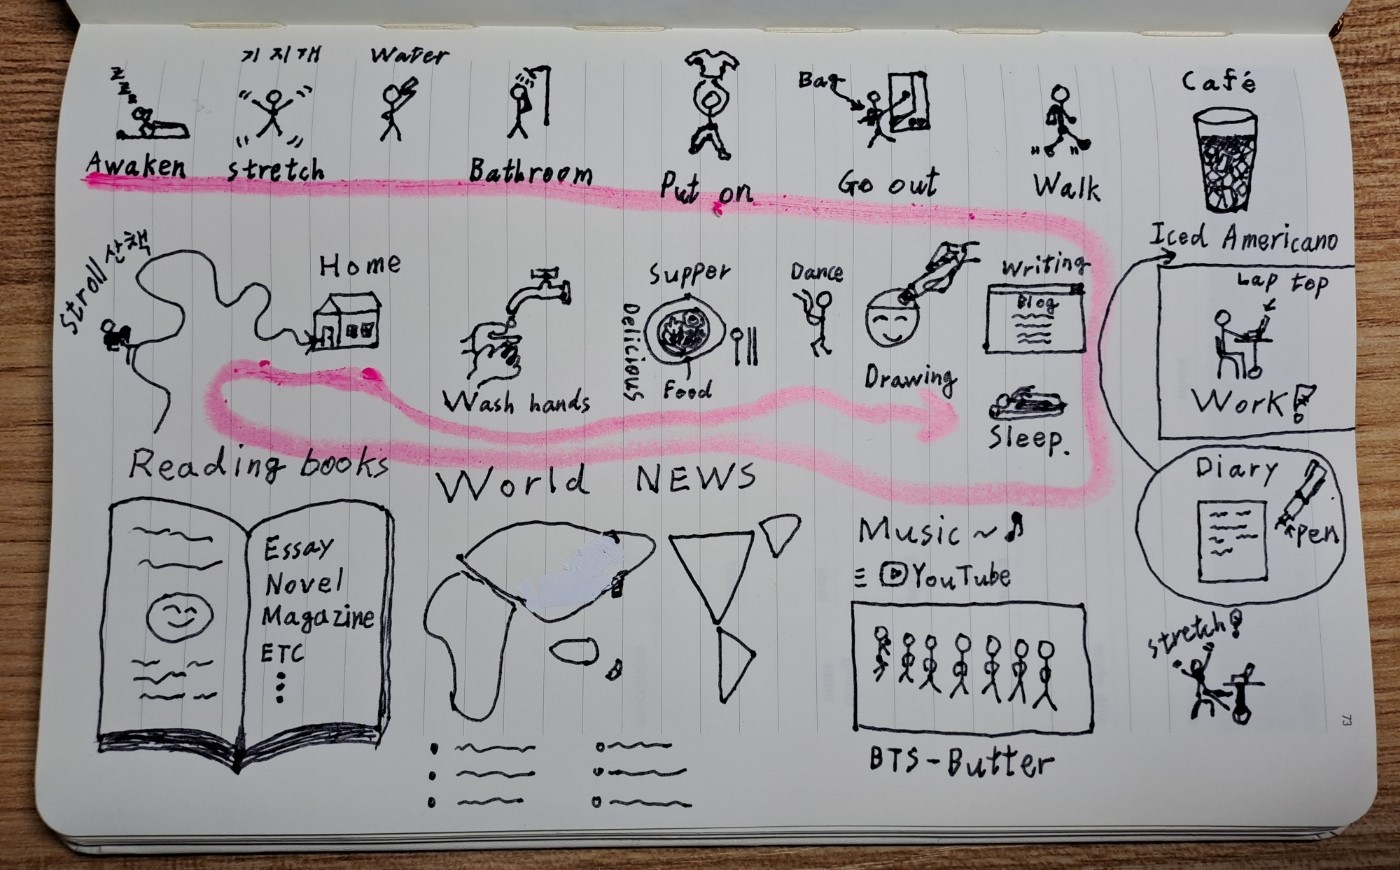 z z z z
기지개
Water
Awaken
stretch
Bathroom
Put on
Bag
Go out
Walk
Café
Iced Americano
Lap top
Work!
Diary
Pen
stretch!
Music ~♪
YouTube
BTS-Butter
World NEWS
Reading books
Essay
Novel
Magazine
ETC
Stroll 산책
Home
Wash hands
Supper
Delicious
Food
Dance
Drawing
Writing
Blog
Sleep.
73